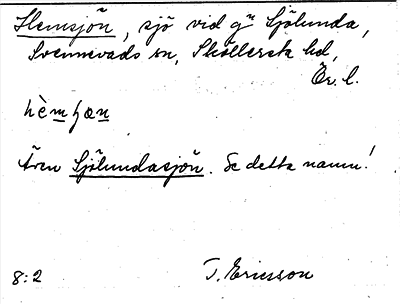 Hemsjön, sjö vid gn Sjölunda,
Svennevads sn, Sköllersta hd,
Ör. l.
hèmʒæn
Även Sjölundasjön. Se detta namn!
8:2 T. Ericsson